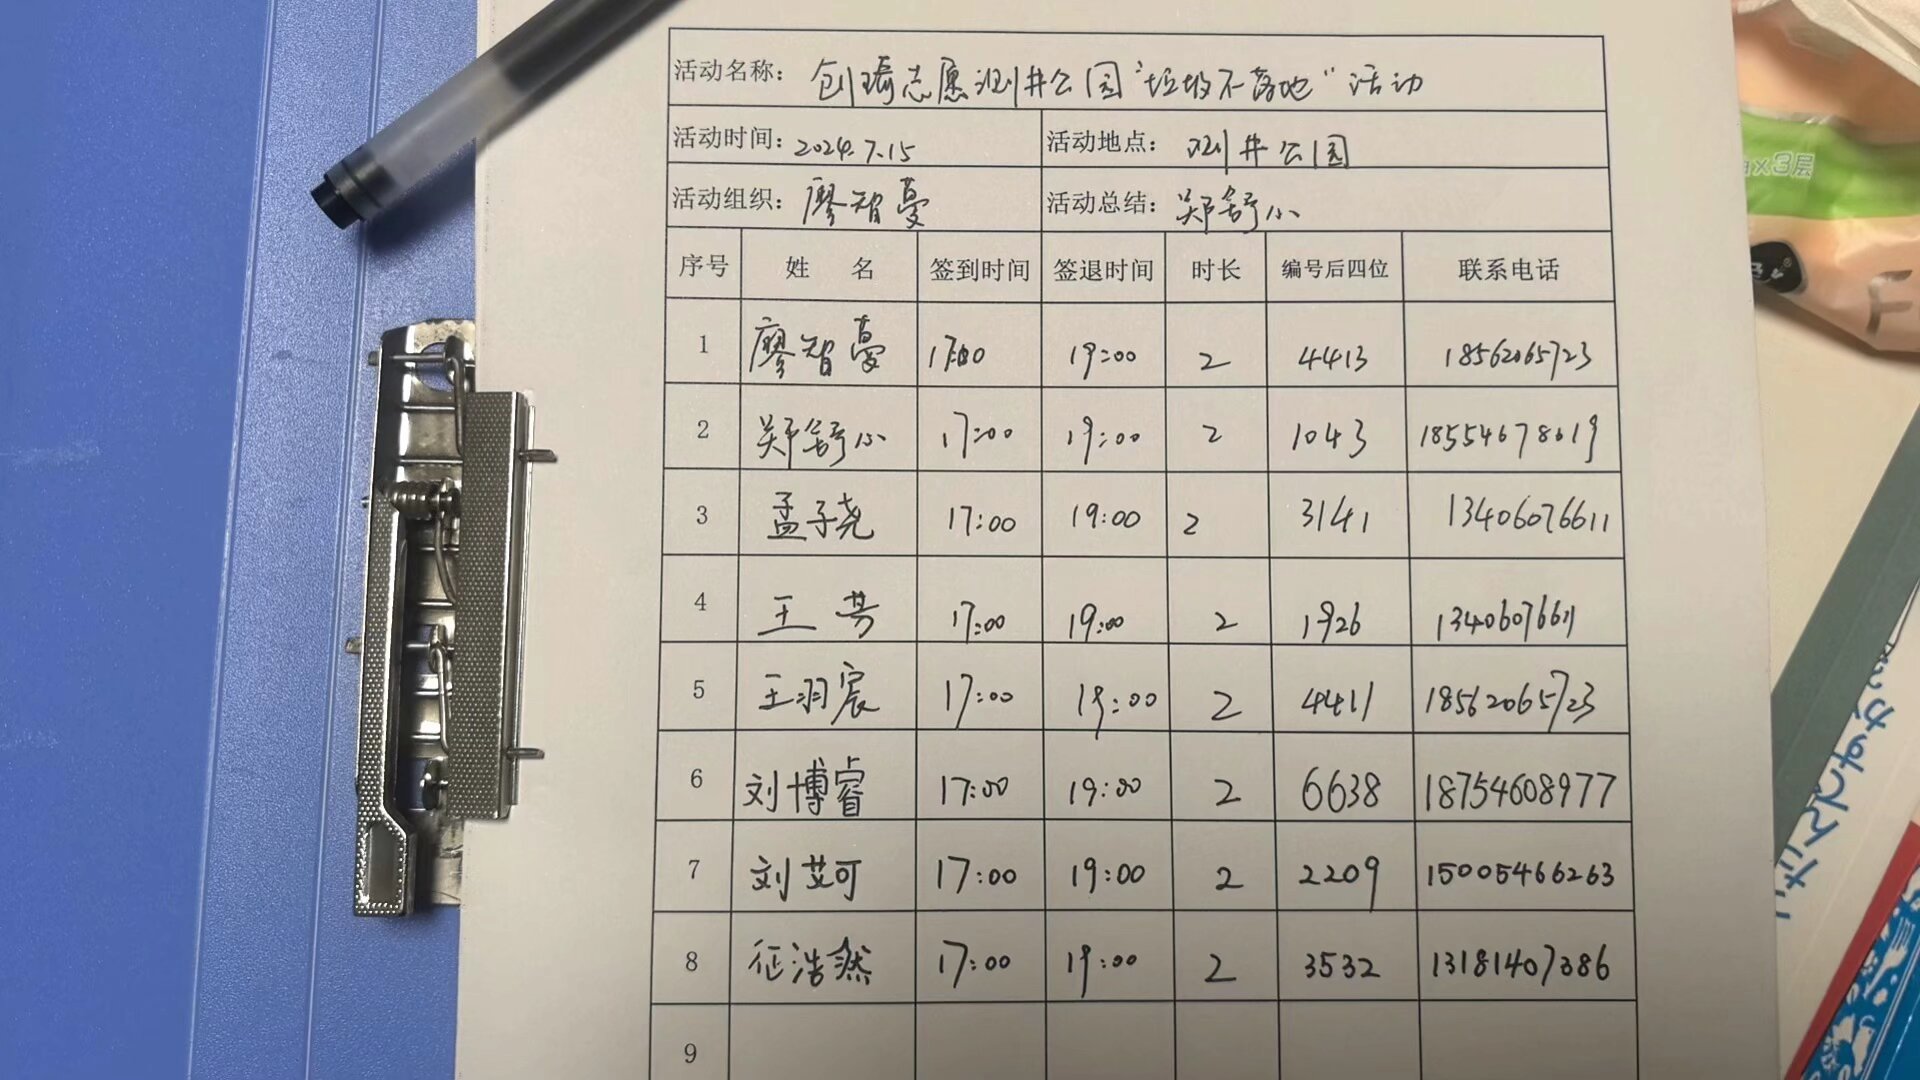 活动名称： 创瑀志愿测井公园“垃圾不落地”活动
活动时间：2024.7.15 活动地点： 测井公园
活动组织：廖智蔓 活动总结：郑舒心
序号 姓 名 签到时间 签退时间 时长 编号后四位 联系电话
1 廖智蔓 17:00 19:00 2 4413 18562065723
2 郑舒心 17:00 19:00 2 1043 18554678019
3 孟子尧 17:00 19:00 2 3141 13406076611
4 王芳 17:00 19:00 2 1926 13406076611
5 王羽宸 17:00 19:00 2 4411 18562065723
6 刘博睿 17:00 19:00 2 6638 18754608977
7 刘艾可 17:00 19:00 2 2209 15005466263
8 征浩然 17:00 19:00 2 3532 13181407386
9
x3层